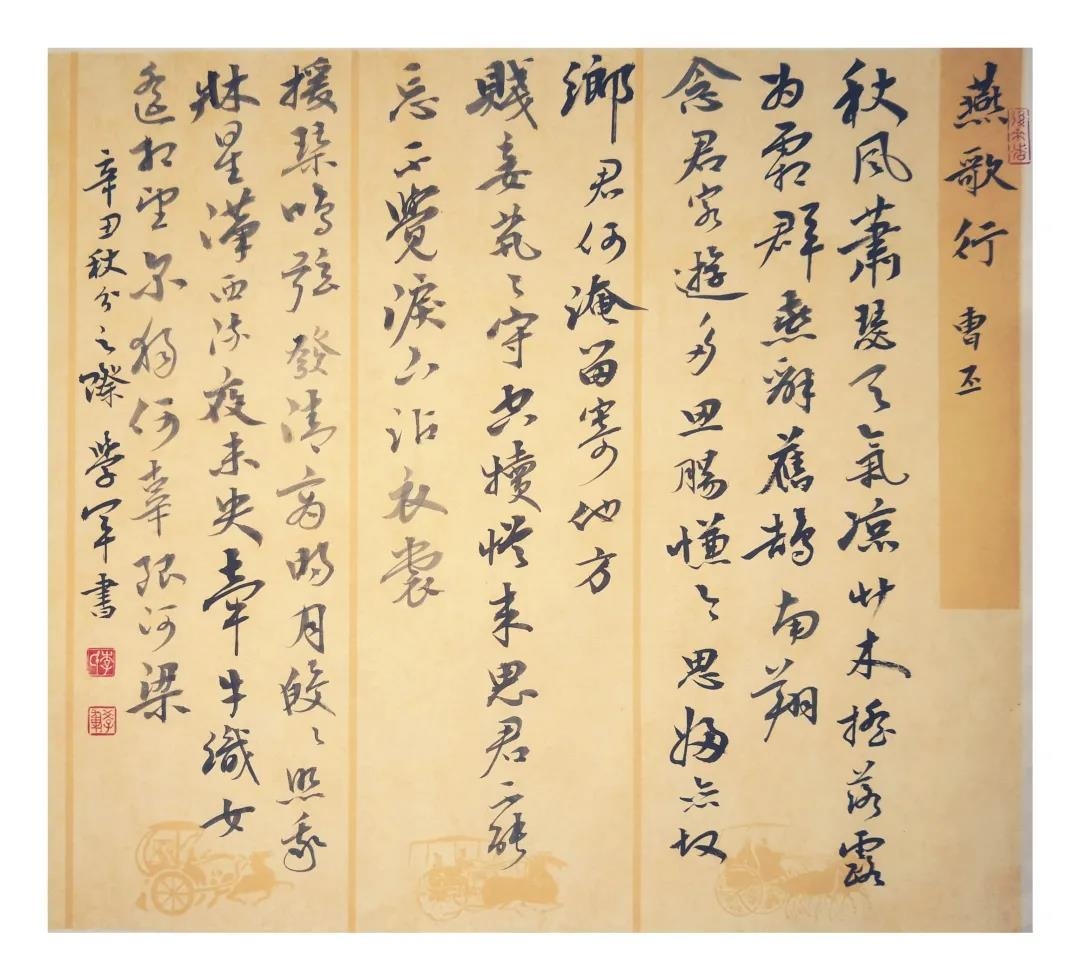 燕歌行 曹丕
秋風蕭瑟天氣凉艸木摇落露
为霜群燕辭舊鵠南翔
念君客遊多思腸慊々思歸戀故
鄉君何淹留寄他方
賤妾煢々守空來思君不能
忘不覺淚下沾衣裳
援琴鳴弦發清商明月皎々照我
牀星漢西流夜未央牽牛織女
遙相望尔獨何辜限河梁
辛丑秋分之際 學軍書